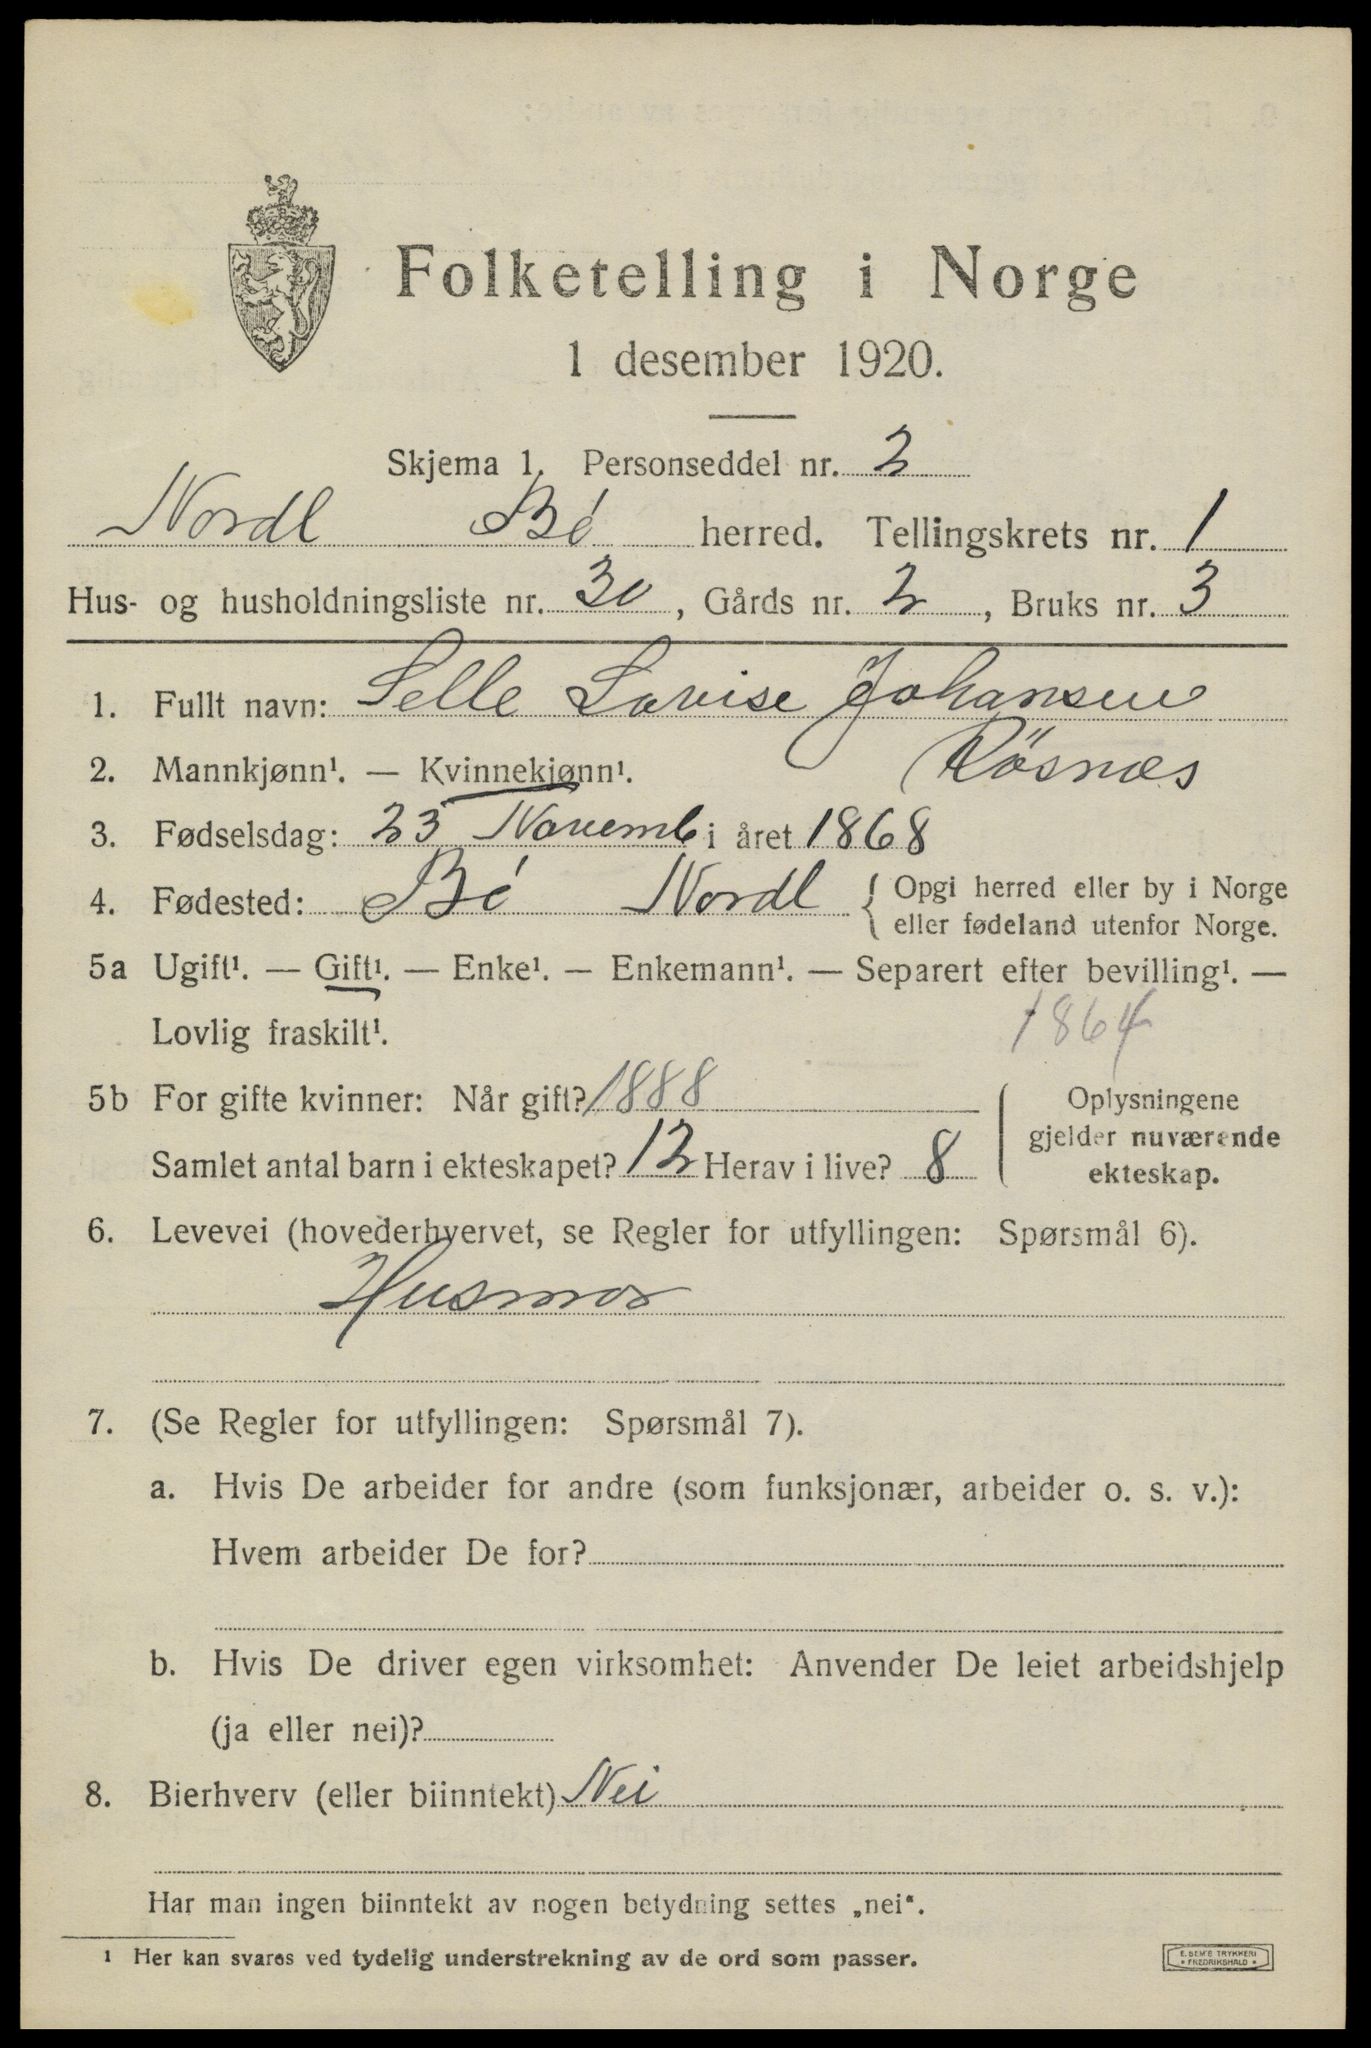 Folketelling i Norge
1 desember 1920.
Skjema 1. Personseddel nr. 2
Nordl Bö herred. Tellingskrets nr. 1
Hus- og husholdningsliste nr. 30, Gårds nr. 2, Bruks nr. 3
1. Fullt navn: Selle Lovise Johansen
Rösnæs
2. Mannkjønn¹. — Kvinnekjønn¹.
3. Fødselsdag: 23 Novemb i året 1868
4. Fødested: Bö Nordl { Opgi herred eller by i Norge
eller fødeland utenfor Norge.
5a Ugift¹. — Gift¹. — Enke¹. — Enkemann¹. — Separert efter bevilling¹. —
Lovlig fraskilt¹.
1864
5b For gifte kvinner: Når gift? 1888
Samlet antal barn i ekteskapet? 12 Herav i live? 8
Oplysningene
gjelder nuværende
ekteskap.
6. Levevei (hovederhvervet, se Regler for utfyllingen: Spørsmål 6).
Husmor
7. (Se Regler for utfyllingen: Spørsmål 7).
a. Hvis De arbeider for andre (som funksjonær, arbeider o. s. v.):
Hvem arbeider De for?
b. Hvis De driver egen virksomhet: Anvender De leiet arbeidshjelp
(ja eller nei)?
8. Bierhverv (eller biinntekt) Nei
Har man ingen biinntekt av nogen betydning settes „nei“.
¹ Her kan svares ved tydelig understrekning av de ord som passer.
E. SEM'S TRYKKERI
* FREDRIKSHALD *